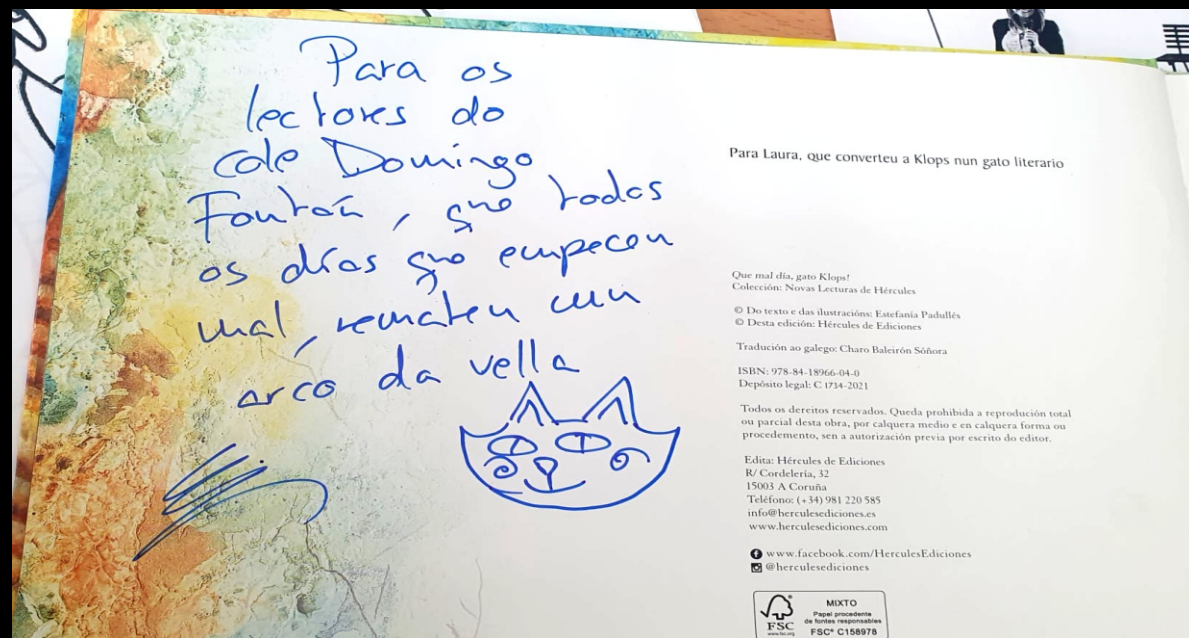 Para os
lectores do
cole Domingo
Fontán, que todos
os días que empecen
mal, rematen cun
arco da vella
Para Laura, que converteu a Klops nun gato literario
Que mal día, gato Klops!
Colección: Novas Lecturas de Hércules
© Do texto e das ilustracións: Estefanía Padullés
© Desta edición: Hércules de Ediciones
Tradución ao galego: Charo Baleirón Sóñora
ISBN: 978-84-18966-04-0
Depósito legal: C 1734-2021
Todos os dereitos reservados. Queda prohibida a reprodución total
ou parcial desta obra, por calquera medio e en calquera forma ou
procedemento, sen a autorización previa por escrito do editor.
Edita: Hércules de Ediciones
R/ Cordelería, 32
15003 A Coruña
Teléfono: (+34) 981 220 585
info@herculesediciones.es
www.herculesediciones.com
www.facebook.com/HerculesEdiciones
@herculesediciones
MIXTO
Papel procedente
de fontes responsables
FSC
www.fsc.org
FSC® C158978